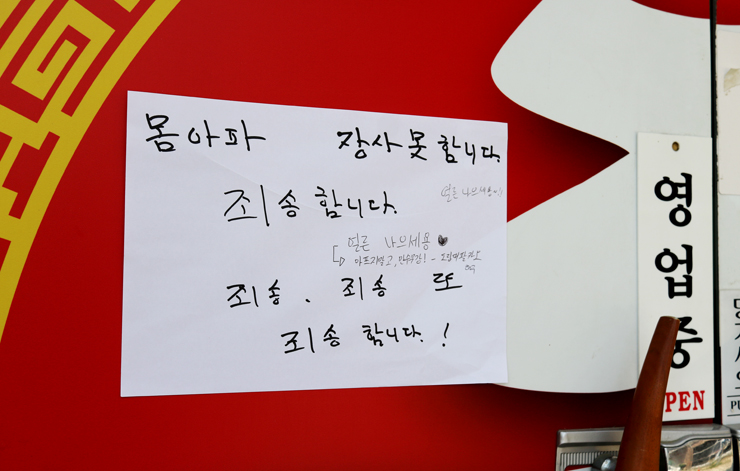 몸아파 장사못합니다.
죄송합니다.
얼른 나으세용!!
얼른 나으세용
아프지말고, 만수무강!
죄송. 죄송 또
죄송합니다.!
영업중
OPEN
PU